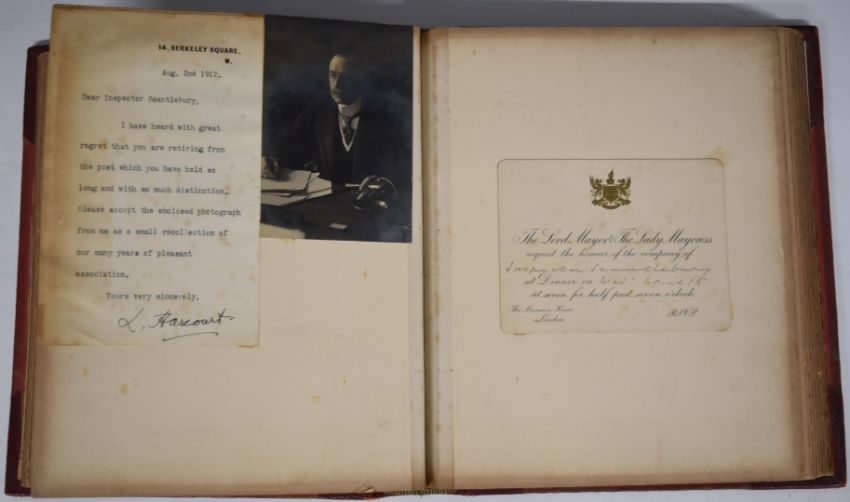 14, BERKELEY SQUARE,
W.
Aug. 2nd 1912.
Dear Inspector Scantlebury,
I have heard with great
regret that you are retiring from
the post which you have held so
long and with so much distinction.
Please accept the enclosed photograph
from me as a small recollection of
our many years of pleasant
association.
Yours very sincerely,
L. Harcourt
The Lord Mayor & The Lady Mayoress
request the honour of the company of
Inspector Scantlebury
at Dinner on Wed. April 15
at seven for half past seven o'clock.
The Mansion House
London
R.S.V.P.